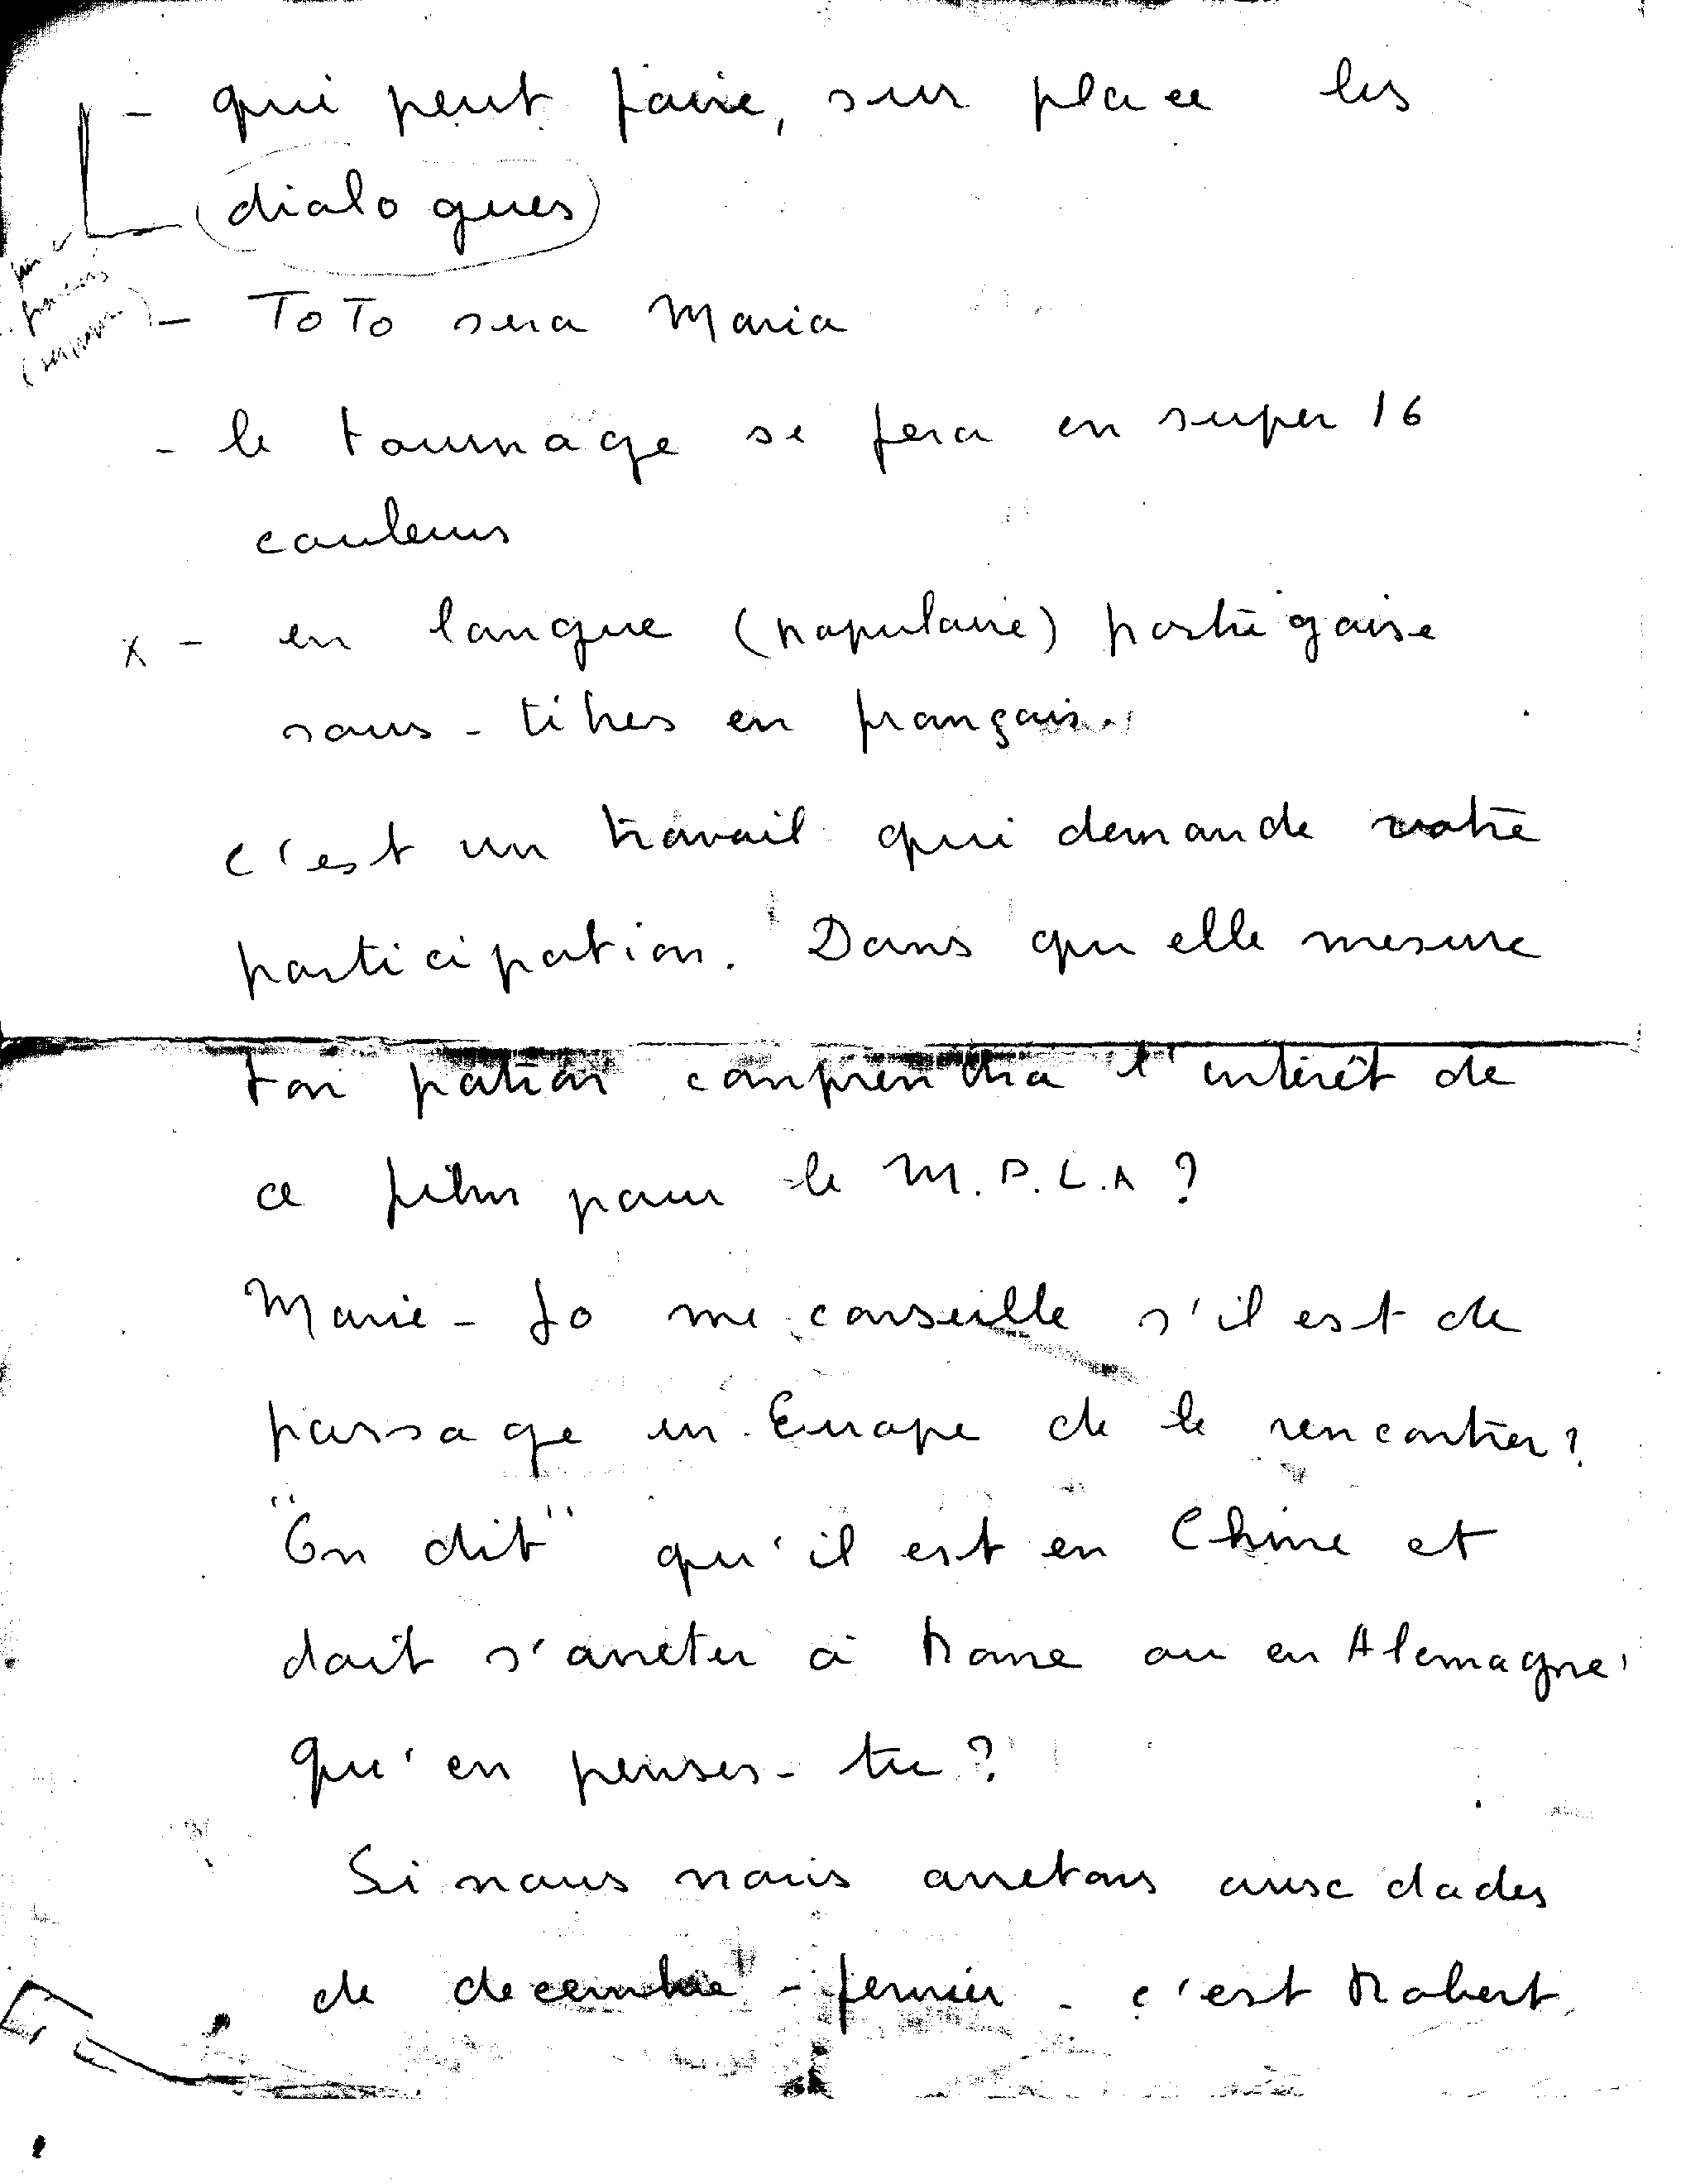 - qui peut faire, sur place les
dialogues
- ToTo sera Maria
- le tournage se fera en super 16
couleurs
x - en langue (populaire) portugaise
sous-titres en français.
c'est un travail qui demande votre
participation. Dans quelle mesure
ton patron comprendra l'intérêt de
ce film pour le M.P.L.A?
Marie-Jo me conseille s'il est de
passage en Europe de le rencontrer?
"On dit" qu'il est en Chine et
doit s'arreter à Rome ou en Alemagne
Qu'en penses-tu?
Si nous nous arretons aux dades
de decembre - fevrier - c'est Robert